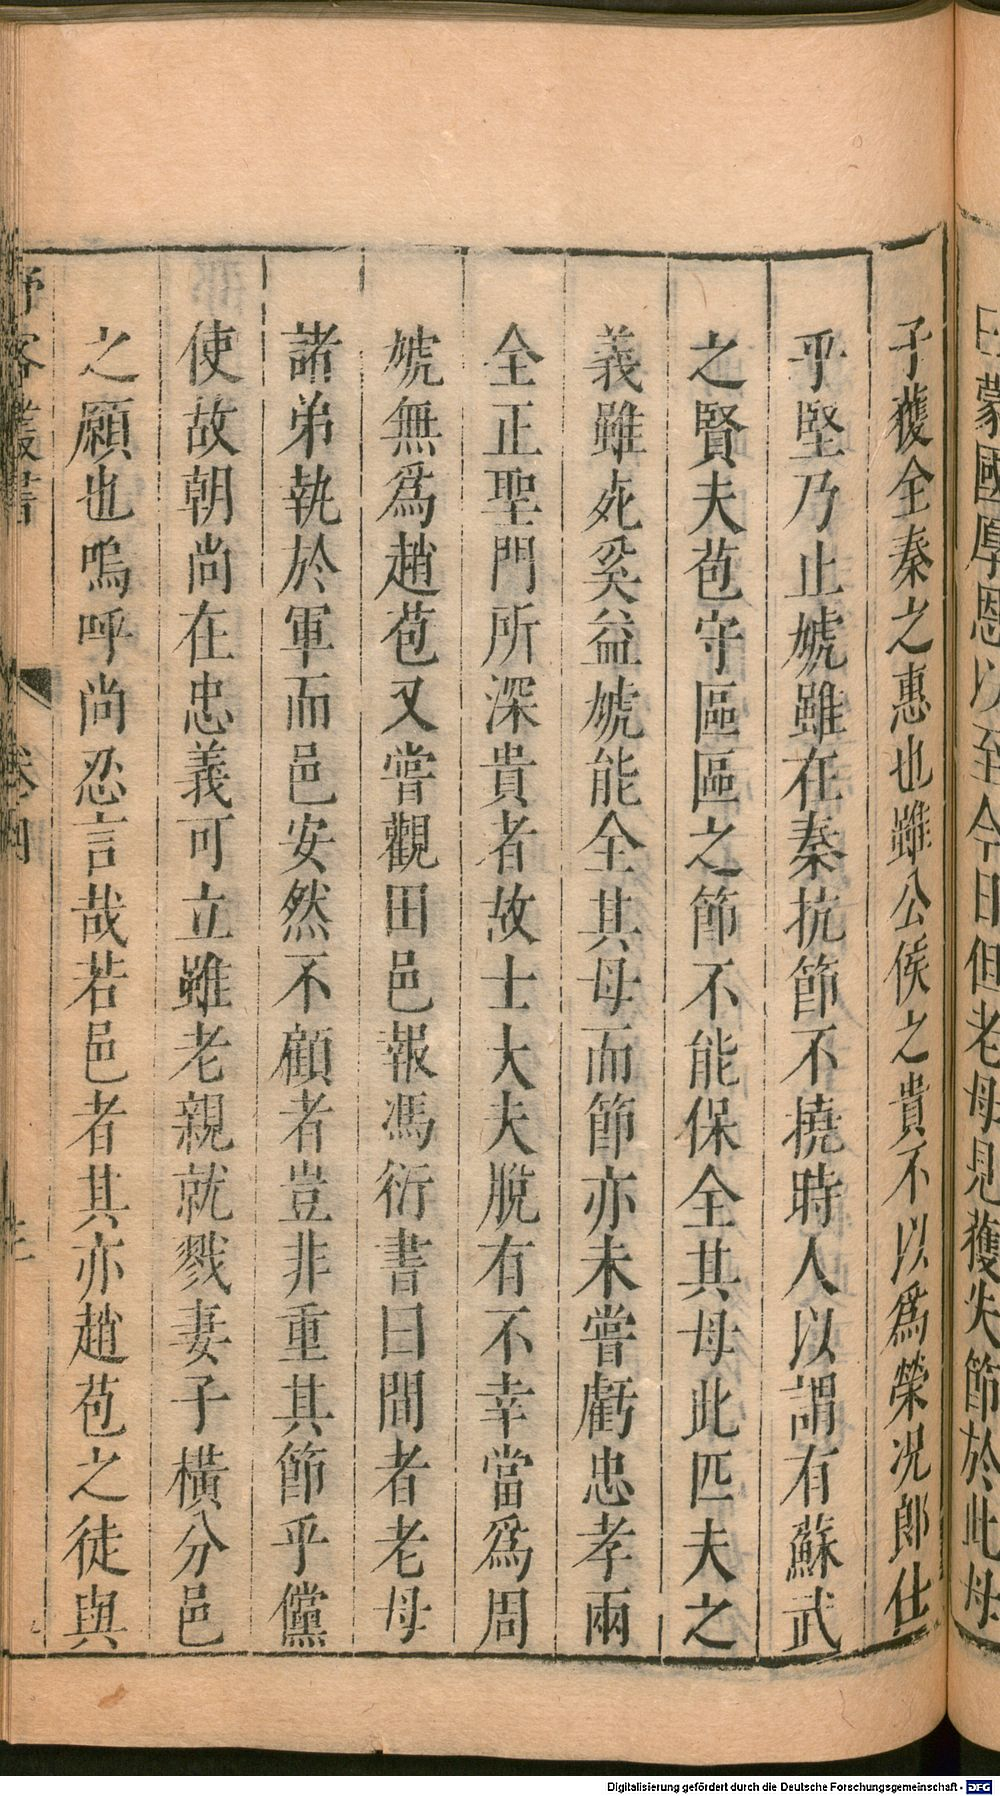 曰蒙國厚恩以至今日但老母見獲失節於此母
子獲全秦之惠也雖公侯之貴不以爲榮况郎仕
乎堅乃止虓雖在秦抗節不撓時人以謂有蘇武
之賢夫苞守區區之節不能保全其母此匹夫之
義雖死奚益虓能全其母而節亦未嘗虧忠孝兩
全正聖門所深貴者故士大夫脫有不幸當爲周
虓無爲趙苞又嘗觀田邑報馮衍書曰間者老母
諸弟執於軍而邑安然不顧者豈非重其節乎儻
使故朝尚在忠義可立雖老親就戮妻子橫分邑
之願也嗚呼尚忍言哉若邑者其亦趙苞之徒與
野客叢書 卷四
Digitalisierung gefördert durch die Deutsche Forschungsgemeinschaft - DFG